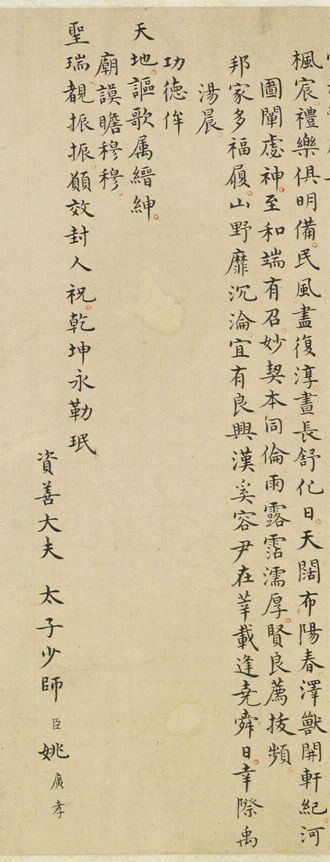 楓宸禮樂俱明備民風盡復淳晝長舒化日天闊布陽春澤獸開軒紀河
圖闡虙神至和端有召妙契本同倫雨露霑濡厚賢良薦拔頻
邦家多福履山野靡沉淪宜有良興漢奚容尹在莘載逢堯舜日幸際禹
湯晨
功德侔
天地謳歌属縉紳
廟謨瞻穆穆
聖瑞覩振振願效封人祝乾坤永勒珉
資善大夫 太子少師 臣 姚廣孝